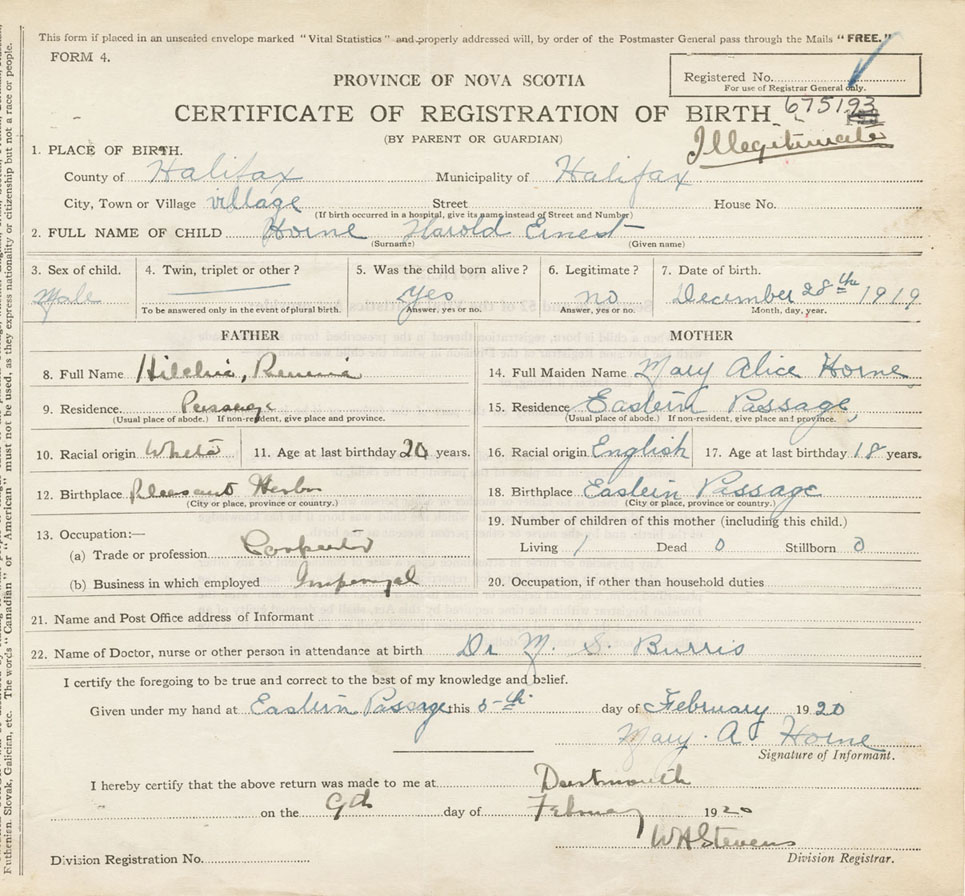 This form if placed in an unsealed envelope marked "Vital Statistics" and properly addressed will, by order of the Postmaster General pass through the Mails "FREE."
FORM 4.
Registered No.
For use of Registrar General only.
PROVINCE OF NOVA SCOTIA
CERTIFICATE OF REGISTRATION OF BIRTH 675193
(BY PARENT OR GUARDIAN) Illegitimate
1. PLACE OF BIRTH.
County of Halifax Municipality of Halifax
City, Town or Village village Street House No.
(If birth occurred in a hospital, give its name instead of Street and Number)
2. FULL NAME OF CHILD Horne Harold Ernest
(Surname) (Given name)
3. Sex of child. 4. Twin, triplet or other? 5. Was the child born alive? 6. Legitimate? 7. Date of birth.
Male yes no December 28th 1919
To be answered only in the event of plural birth. Answer, yes or no. Answer, yes or no. Month, day, year.
FATHER MOTHER
8. Full Name 14. Full Maiden Name Mary Alice Horne
9. Residence. Passage 15. Residence Eastern Passage,
(Usual place of abode.) If non-resident, give place and province. (Usual place of abode.) If non-resident, give place and province.
10. Racial origin 11. Age at last birthday 20 years. 16. Racial origin English 17. Age at last birthday 18 years.
12. Birthplace 18. Birthplace Eastern Passage
(City or place, province or country.) (City or place, province or country.)
13. Occupation:— 19. Number of children of this mother (including this child.)
(a) Trade or profession Living 1 Dead 0 Stillborn 0
(b) Business in which employed 20. Occupation, if other than household duties
21. Name and Post Office address of Informant
22. Name of Doctor, nurse or other person in attendance at birth Dr M. S. Burris
I certify the foregoing to be true and correct to the best of my knowledge and belief.
Given under my hand at Eastern Passage this 5th day of February 1920
Mary. A. Horne
Signature of Informant.
I hereby certify that the above return was made to me at Dartmouth
on the 9th day of February 1920
W H Stevens
Division Registration No. Division Registrar.
Ruthenian, Slovak, Galician, etc. The words "Canadian" or "American" must not be used, as they express nationality or citizenship but not a race or people.